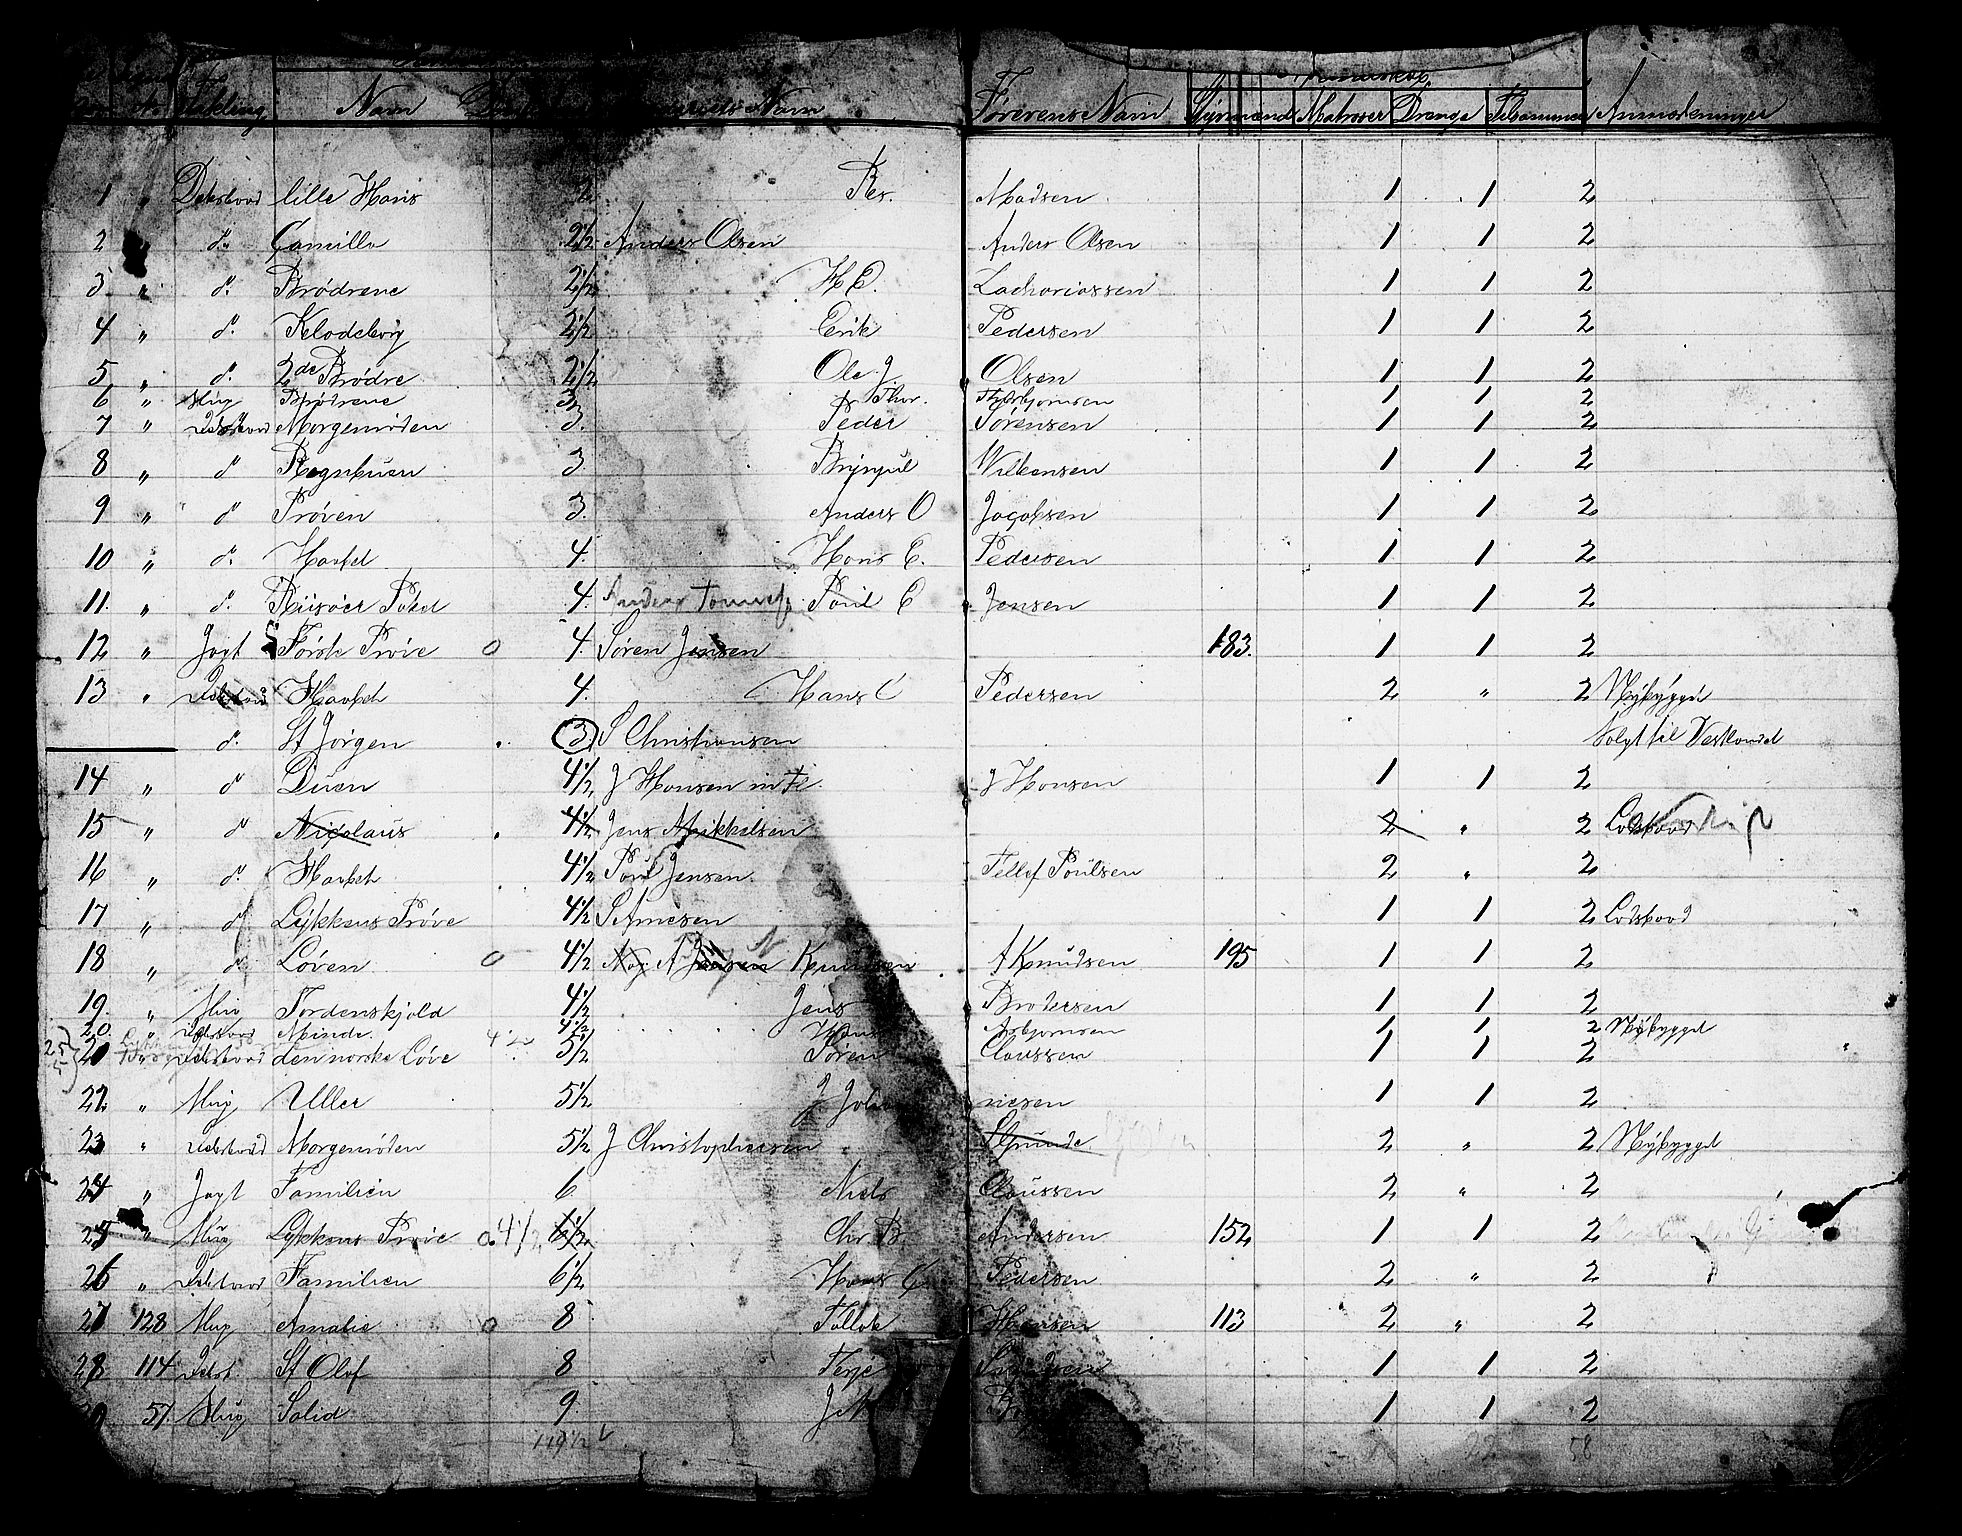 Takling Navn Navn Førerens Navn Styrmænd Matroser Drenge Tilsammen Anmærkninger
1 " Deksbaad lille Hans 2 Ber. Madsen 1 1 2
2 " do Camilla 2 1/2 Anders Olsen Anders Olsen 1 1 2
3 " do Brødrene 2 1/2 H C. Zachariassen 1 1 2
4 " do Klodeborg 2 1/2 Erik Pedersen 1 1 2
5 " do 2de Brødre 2 1/2 Ole J. Olsen 1 1 2
6 " Slup Brødrene 3 Thor. Thorbjørnsen 1 1 2
7 " Deksbaad Morgenrøden 3. Peder Sørensen 1 1 2
8 " do Regnbuen 3 Brynjul Wilkensen 1 1 2
9 " do Prøven 3. Anders O Jacobsen 1 1 2
10 " do Havfed 4. Hans C. Pedersen 1 1 2
11. " do Riisøer Paket 4. Poul C Jensen 1 1 2
12 " Jagt Første Prøve 0 4. Søren Jensen 183. 1 1 2
13 " Deksbaad Havket 4. Hans C Pedersen 2 " 2 Nybygget
do St Jørgen . 3. S Christiansen Solgt til Vestlandet
14 " do Duen 4 1/2 J Hansen J Hansen 1 1 2
15 " do Nicolaus . 4 1/2 Jens Mikkelsen 2 " 2 Lodsbaad
16 " do Havket . 4 1/2 Poul Jensen. Tellef Poulsen 2 " 2
17 " do Lykkens Prøve 4 1/2 S Arnesen 1 1 2 Lodsbaad
18 " do Løven 0 4 1/2 A Jensen Knudsen A Knudsen 195 1 1 2
19. " Slup Tordenskjold 4 1/2 Jens Brodersen 1 1 2
20 " Deksbaad Minde. 4 1/2 Hans Asbjørnsen 1 1 2 Nybygget
21 " Deksbaad den norske Løve 5 1/2 Søren Claussen 1 1 2
22 " Slup Uller 5 1/2 J Johan nesen 1 1 2
23 " Deksbaad Morgenrøden 5 1/2 J Christophersen S Gunde 2 " 2 Nybygget
24 " Jagt Familien 6 Niels Claussen 2 " 2
25 " Slup Lykkens Prøve 0. 4 1/2 6 1/2 Chr B. Andersen 152 1 1 2
26 " Deksbaad Familien 6 1/2 Hans C Pedersen 2 " 2
27 128 Slup Amalie 0 8 Tallak Hansen 113 2 " 2
28 114 Deksb. St Olaf 8 Terje 1 1 2
57 Slug Solid 9. 1 1 2
119 1/2 58